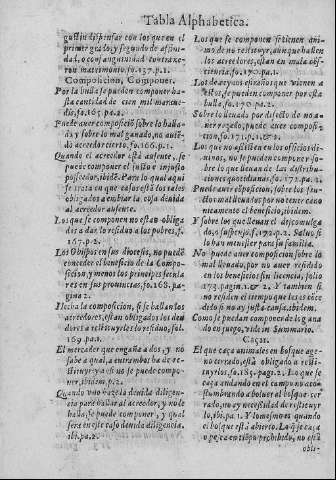 Tabla Alphabetica.
gustin dispensar con los que en el
primer grado, y segundo de afini-
dad, o con angunidad contraxe-
ron matrimonio. fo. 137. p. 1.
Composicion, Componer.
Por la bulla se pueden componer ha-
sta cantidad de cien mil marave-
dis, fo. 165. pa. 2.
Puede auer composiciõ sobre lo halla-
do, y sobre lo mal ganado, no auiẽ-
do acreedor cierto. fo. 166. p. 1.
Quando el acreedor està ausente, se
puede componer el justo o injusto
posseedor, ibidẽ. Para lo qual aqui
se trata en que casos està los tales
obligados a embiar la cosa deuida
al acreedor ausente.
Los que se componen no estan obliga-
dos a dar lo residuo a los pobres, f.
167. p. 2.
Los Obispos en sus diocesis, no puedẽ
conceder el beneficio de la Compo-
sicion, y menos los principes secula
res en sus prouincias, fo. 168. pa-
gina 2.
Hecha la composicion, si se hallan los
acreedores, estan obligados los deu-
dores a restituyrles lo residuo, fol.
169. pa. 1.
El mercader que engaña a dos, y no
sabe a qual, a entrambos ha de re-
stituyr y assi no se puede compo-
ner, ibidem, p. 2.
Quando vno haze la deuida diligen-
cia para hallar al acreedor, y no le
halla, se puede componer, y qual
sera en este caso deuida diligencia.
ibi. pa. 2.
Los que se componen si tienen ani-
mo de no restituyr, aunque hallen
los acreedores, estan en mala cõs-
ciencia. fo. 170. pa. 1.
Los de reynos estraños que vienẽ
a estos se pueden componer por esta
bulla. fo. 170. pa. 2.
Sobre lo lleuado por defeto de no a-
uer rezado, puede auer composi-
cion. fo. 171. p. 1.
Los que no assisten en los oficios di-
uinos, no se pueden componer so-
bre lo que lleuan de las distribu-
ciones quotidianas. fo. 171. pa. 2.
Puede auer composicion, sobre los fru-
ctos mal lleuados por no tener cano
nicamente el beneficio, ibidem.
Y sobre los que lleuan el descomulga-
do, o suspenso, f. 172. p. 2. Saluo si
lo han menester para su familia.
No puede auer composicion sobre lo
mal lleuado, por no auer residido
en los beneficios sin licencia, folio
173. pagin. 1. & 2. Y tambien si
no residen el tiempo que les es cõce
dido si no ay justa causa, ibidem.
Como se puedan componer de lo gana
do en juego, vide in Summario.
Caçar.
El que caça animales en bosque age-
no cercado, està obligado a resti-
tuyrlos, fo. 185. pagi. 2. Lo que se
caça andando en el campo no aco-
stumbrando a boluer al bosque cer
rado, no ay necessidad de restituyr
lo, ibi. pa. 1. Y lo mesmo quando
el bosque està abierto. Lo q̃ se caça
o pesca en tiẽpo prohibido, no està
obli-